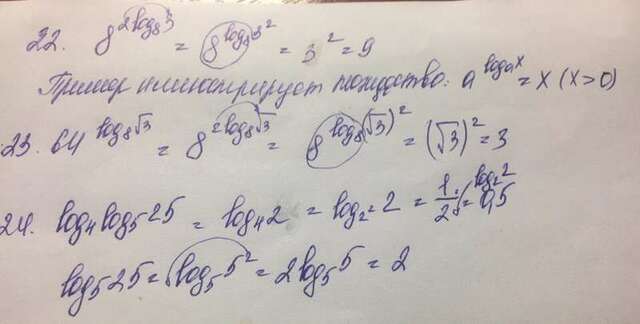 22. 8^{2log_8 3} = 8^{log_8 3^2} = 3^2 = 9
Пример иллюстрирует тождество: a^{log_a x} = x (x>0)
23. 64^{log_8 √3} = 8^{2log_8 √3} = 8^{log_8 (√3)^2} = (√3)^2 = 3
24. log_4 log_5 25 = log_4 2 = log_{2^2} 2 = 1/2 log_2 2 = 0,5
log_5 25 = log_5 5^2 = 2 log_5 5 = 2